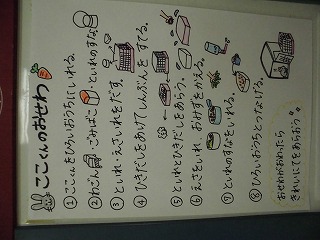 ここくんのおせわ
① ここくんをひろいおうちにいれる。
② わごん・ごみばこ・といれのすな
③ といれ・えさいれをだす。
④ ひきだしをあけてしんぶんをすてる。
⑤ といれとひきだしをあらう。
⑥ えさをいれ、おみずをかえる。
⑦ といれのすなをいれる。
⑧ ひろいおうちとつなげる。
おせわがおわったら
きれいにてをあらおう。